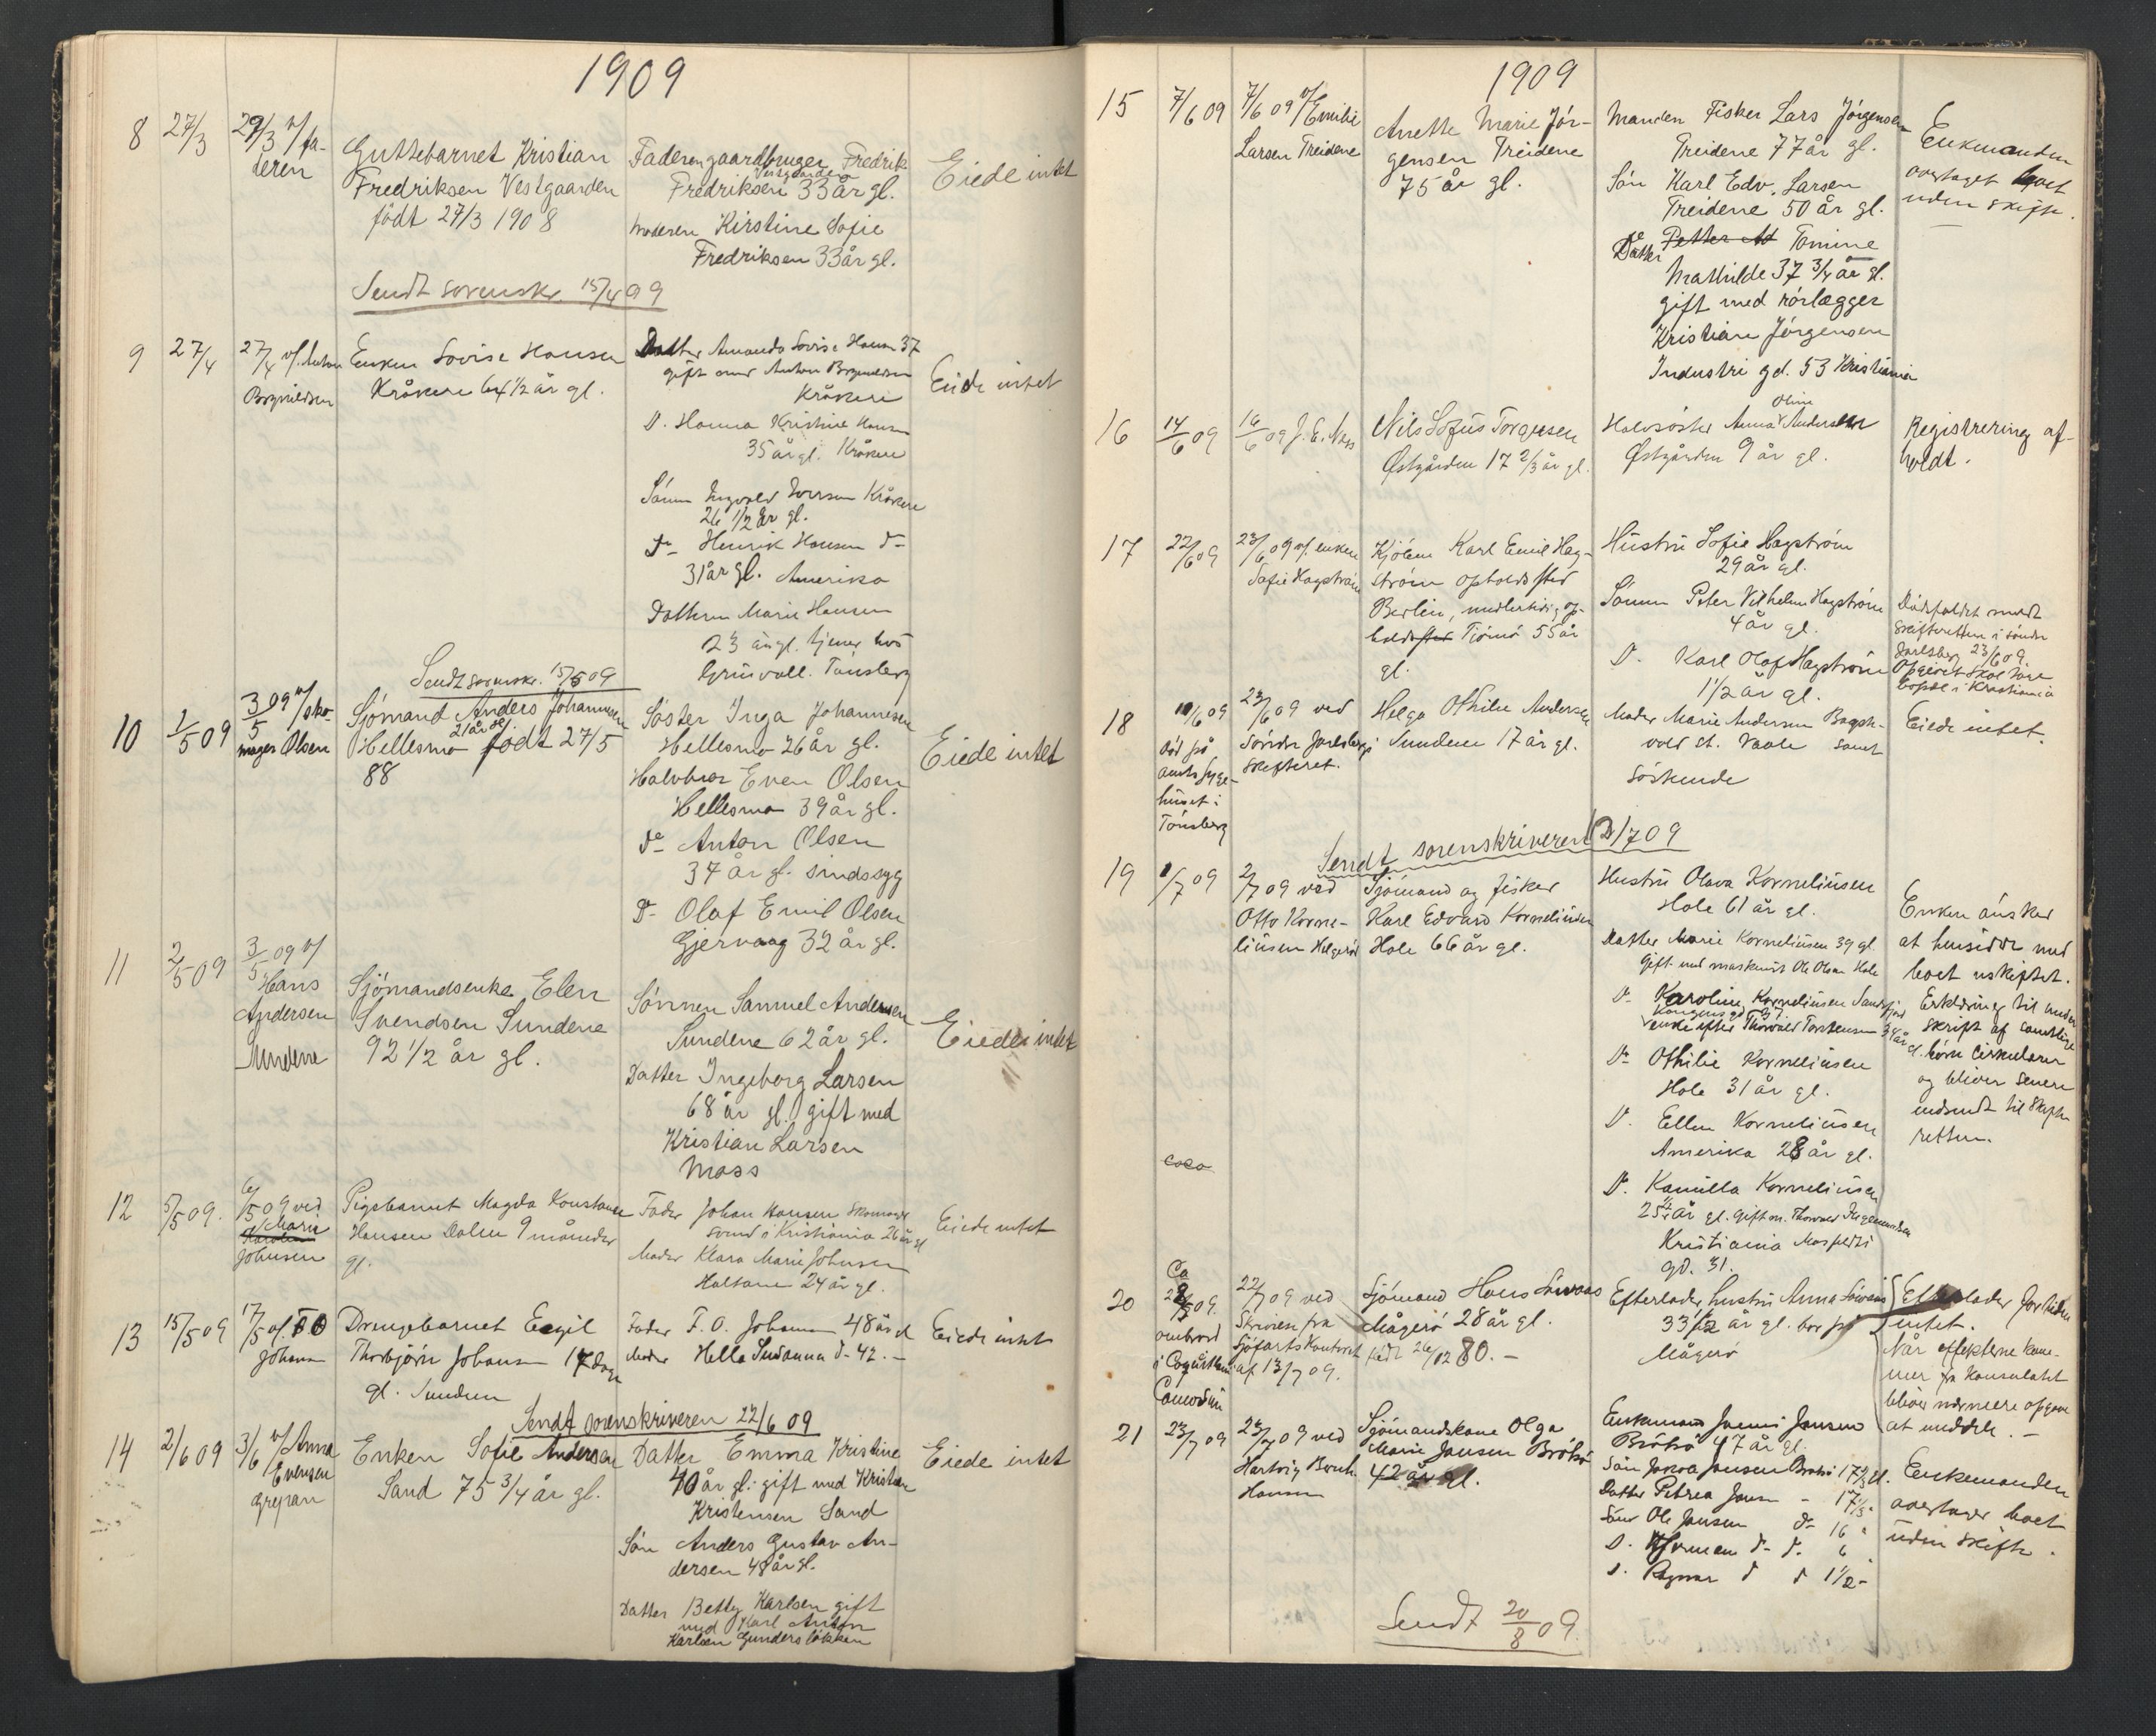 1909
8 27/3 29/3 v/ fa-
deren
Guttebarnet Kristian
Fredriksen Vestgaarden
født 27/3 1908
Faderen gaardbruger Fredrik
Vestgaarden
Fredriksen 33 år gl.
moderen Kirstine Sofie
Fredriksen 33 år gl.
Eiede intet
Sendt sorenskr. 15/4 09
9 27/4 27/4 v/ Anton
Enken Lovise Hansen
Kråkere 64 1/2 år gl.
Datter Amanda Lovise Hansen 37
gift med Anton
Kråkere
D. Hanna Kristine Hansen
35 år gl. Kråkere
Sønn Ingvald Kråkere
26 1/2 år gl.
do Henrik Hansen do
31 år gl. Amerika
Datteren Marie Hansen
23 år gl. tjener hos
Grünvall. Tønsberg
Eiede intet
Sendt sorenskr. 15/5 09
10 1/5 09 3/5 09 v/ sko-
mager Olsen
Sjømand Anders Johannesen
21 år gl.
Hellesmo født 27/5
88
Søster Inga Johannesen
Hellesmo 26 år gl.
Halvbror Even Olsen
Hellesmo 39 år gl.
do Anton Olsen
37 år gl. sindssyg
do Olaf Emil Olsen
Gjervaag 32 år gl.
Eiede intet
11 2/5 09 3/5 09 v/
Hans
Andersen
Sundene
Sjømandsenke Elen
Svendsen Sundene
92 1/2 år gl.
Sønnen Samuel Andersen
Sundene 62 år gl.
Datter Ingeborg Larsen
68 år gl. gift med
Kristian Larsen
Moss
Eiede intet
12 5/5 09. 6/5 09 ved
Marie
Johnsen
Pigebarnet Magda Konstance
Hansen Dalen 9 måneder
gl.
Fader Johan Hansen Skomager
svend i Kristiania 26 år gl
Moder Klara Marie Johnsen
Haltane 24 år gl.
Eiede intet
13 15/5 09 17/5 v/. F O
Johansen
Drengebarnet Eegil
Thorbjørn Johansen 17 dage
gl. Sundene
Fader F. O. Johansen 48 år gl
Moder Hella Susanna do 42. -
Eiede intet
Sendt sorenskriveren 22/6 09
14 2/6 09 3/6 v/ Anna
Evensen
Grepan
Enken Sofie Andersen
Sand 75 3/4 år gl.
Datter Emma Kristine
40 år gl. gift med Kristian
Kristensen Sand
Søn Anders Gustav An-
dersen 48 år gl.
Datter Betty Karlsen gift
med Karl Anton
Karlsen Gundersløkken
Eiede intet
1909
15 7/6 09 7/6 09 v/ Emilie
Larsen Treidene
Anette Marie Jør-
gensen Treidene
75 år gl.
Manden Fisker Lars Jørgensen
Treidene 77 år gl.
Søn Karl Edv. Larsen
Treidene 50 år gl.
do Petter Ad Tomine
Datter
Mathilde 37 3/4 år gl.
gift med rørlægger
Kristian Jørgensen
Industri gd. 53 Kristiania
Enkemanden
overtaget boet
uden skifte.
16 14/6 09 16/6 09 J. E. Næss
Nils Sofus Torgersen
Østgården 17 2/3 år gl.
Oline
Halvsøster Anna Andersen
Østgården 9 år gl.
Registrering af-
holdt.
17 22/6 09 23/6 09 v/. enken
Sofie Hagstrøm
Kjøbm Karl Emil Hag-
strøm opholdssted
Berlin, midlertidig op-
holdssted Tjømø 55 år
gl.
Hustru Sofie Hagstrøm
29 år gl.
Sønn Peter Vilhelm Hagstrøm
4 år gl.
D. Karl Olaf Hagstrøm
1 1/2 år gl.
Dødsfaldet meldt
skifteretten i søndre
Jarlsberg 23/6 09.
Opgivet skal være
bopæl i Kristiania
18 10/6 09
død på
amts syge-
huset i
Tønsberg
23/6 09 ved
Søndre Jarlsbergs
skifteret.
Helga Othilie Andersen
Sundene 17 år gl.
Moder Marie Andersen
vold st. Vaale samt
søskende
Eiede intet.
Sendt sorenskriveren 12/7 09
19 1/7 09 2/7 09 ved
Otto Korne-
liusen Helgerød
Sjømand og fisker
Karl Edvard Korneliusen
Hole 66 år gl.
Hustru Olava Korneliusen
Hole 61 år gl.
Datter Marie Korneliusen 39 gl
Gift med maskinist Ole Olsen Hole
D. Karoline Korneliusen Sandefjord
Kongens gd 37
enke efter Thorvald Torstensen 34 år gl.
do Othilie Korneliusen
Hole 31 år gl.
D. Ellen Korneliusen
Amerika 28 år gl.
D. Kamilla Korneliusen
25 år gl. Gift m. Thorvald
Kristiania
gd. 31.
Enken ønsker
at hensidde med
boet uskiftet.
Erklæring til under
skrift af samtlige
børn cirkulerer
og bliver senere
indsendt til Skifte
retten.
20 Ca
28/5 09.
ombord
22/7 09 ved
Skrivelse fra
Sjøfartskontoret
af 13/7 09.
Sjømand Hans
Mågerø 28 år gl.
født 26/12 80. -
Efterlader hustru Anna
33 1/2 år gl. bor på
Mågerø
Efterlader forhåben
intet.
Når effekterne kom-
mer fra Konsulatet
bliver nærmere opgave
at meddele. -
21 23/7 09 23/7 09 ved
Hartvig Bernh.
Hansen
Sjømandskone Olga
Marie Jansen Brøtsø
42 år gl.
Enkemand Jansen
Brøtsø 47 år gl.
Søn Jansen Brøtsø 17 gl.
Datter Petrea Jansen - 17 1/3 "
Sønn Ole Jansen do 16 "
D. Herman do d. 6
D. Ragnar d d 1 1/2 -
Enkemanden
overtager boet
uden skifte.
Sendt 20/8 09.